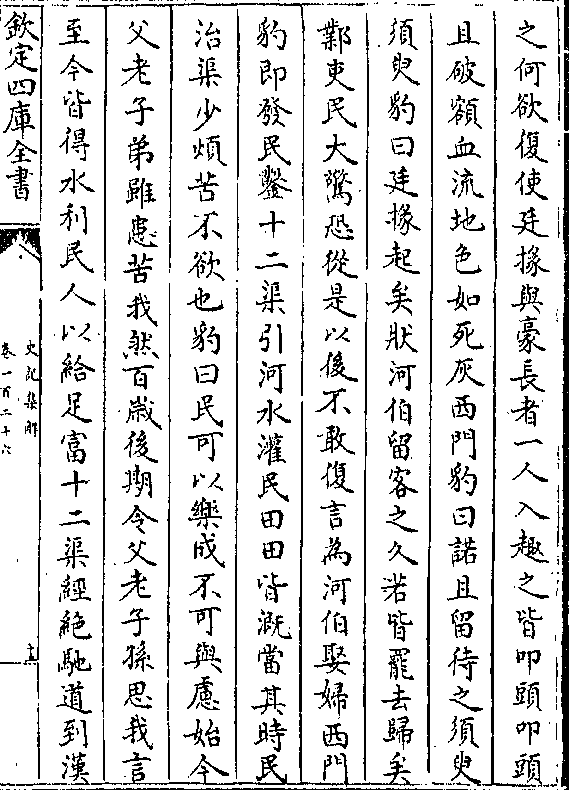 之何欲復使廷掾與豪長者一人入趣之皆叩頭叩頭
且破額血流地色如死灰西門豹曰諾且留待之須臾
須臾豹曰廷掾起矣狀河伯留客之久若皆罷去歸矣
鄴吏民大驚恐從是以後不敢復言為河伯娶婦西門
豹即發民鑿十二渠引河水灌民田田皆溉當其時民
治渠少煩苦不欲也豹曰民可以樂成不可與慮始今
父老子弟雖患苦我然百歲後期令父老子孫思我言
至今皆得水利民人以給足富十二渠經絶馳道到漢
欽定四庫全書
史記集解
卷一百二十六